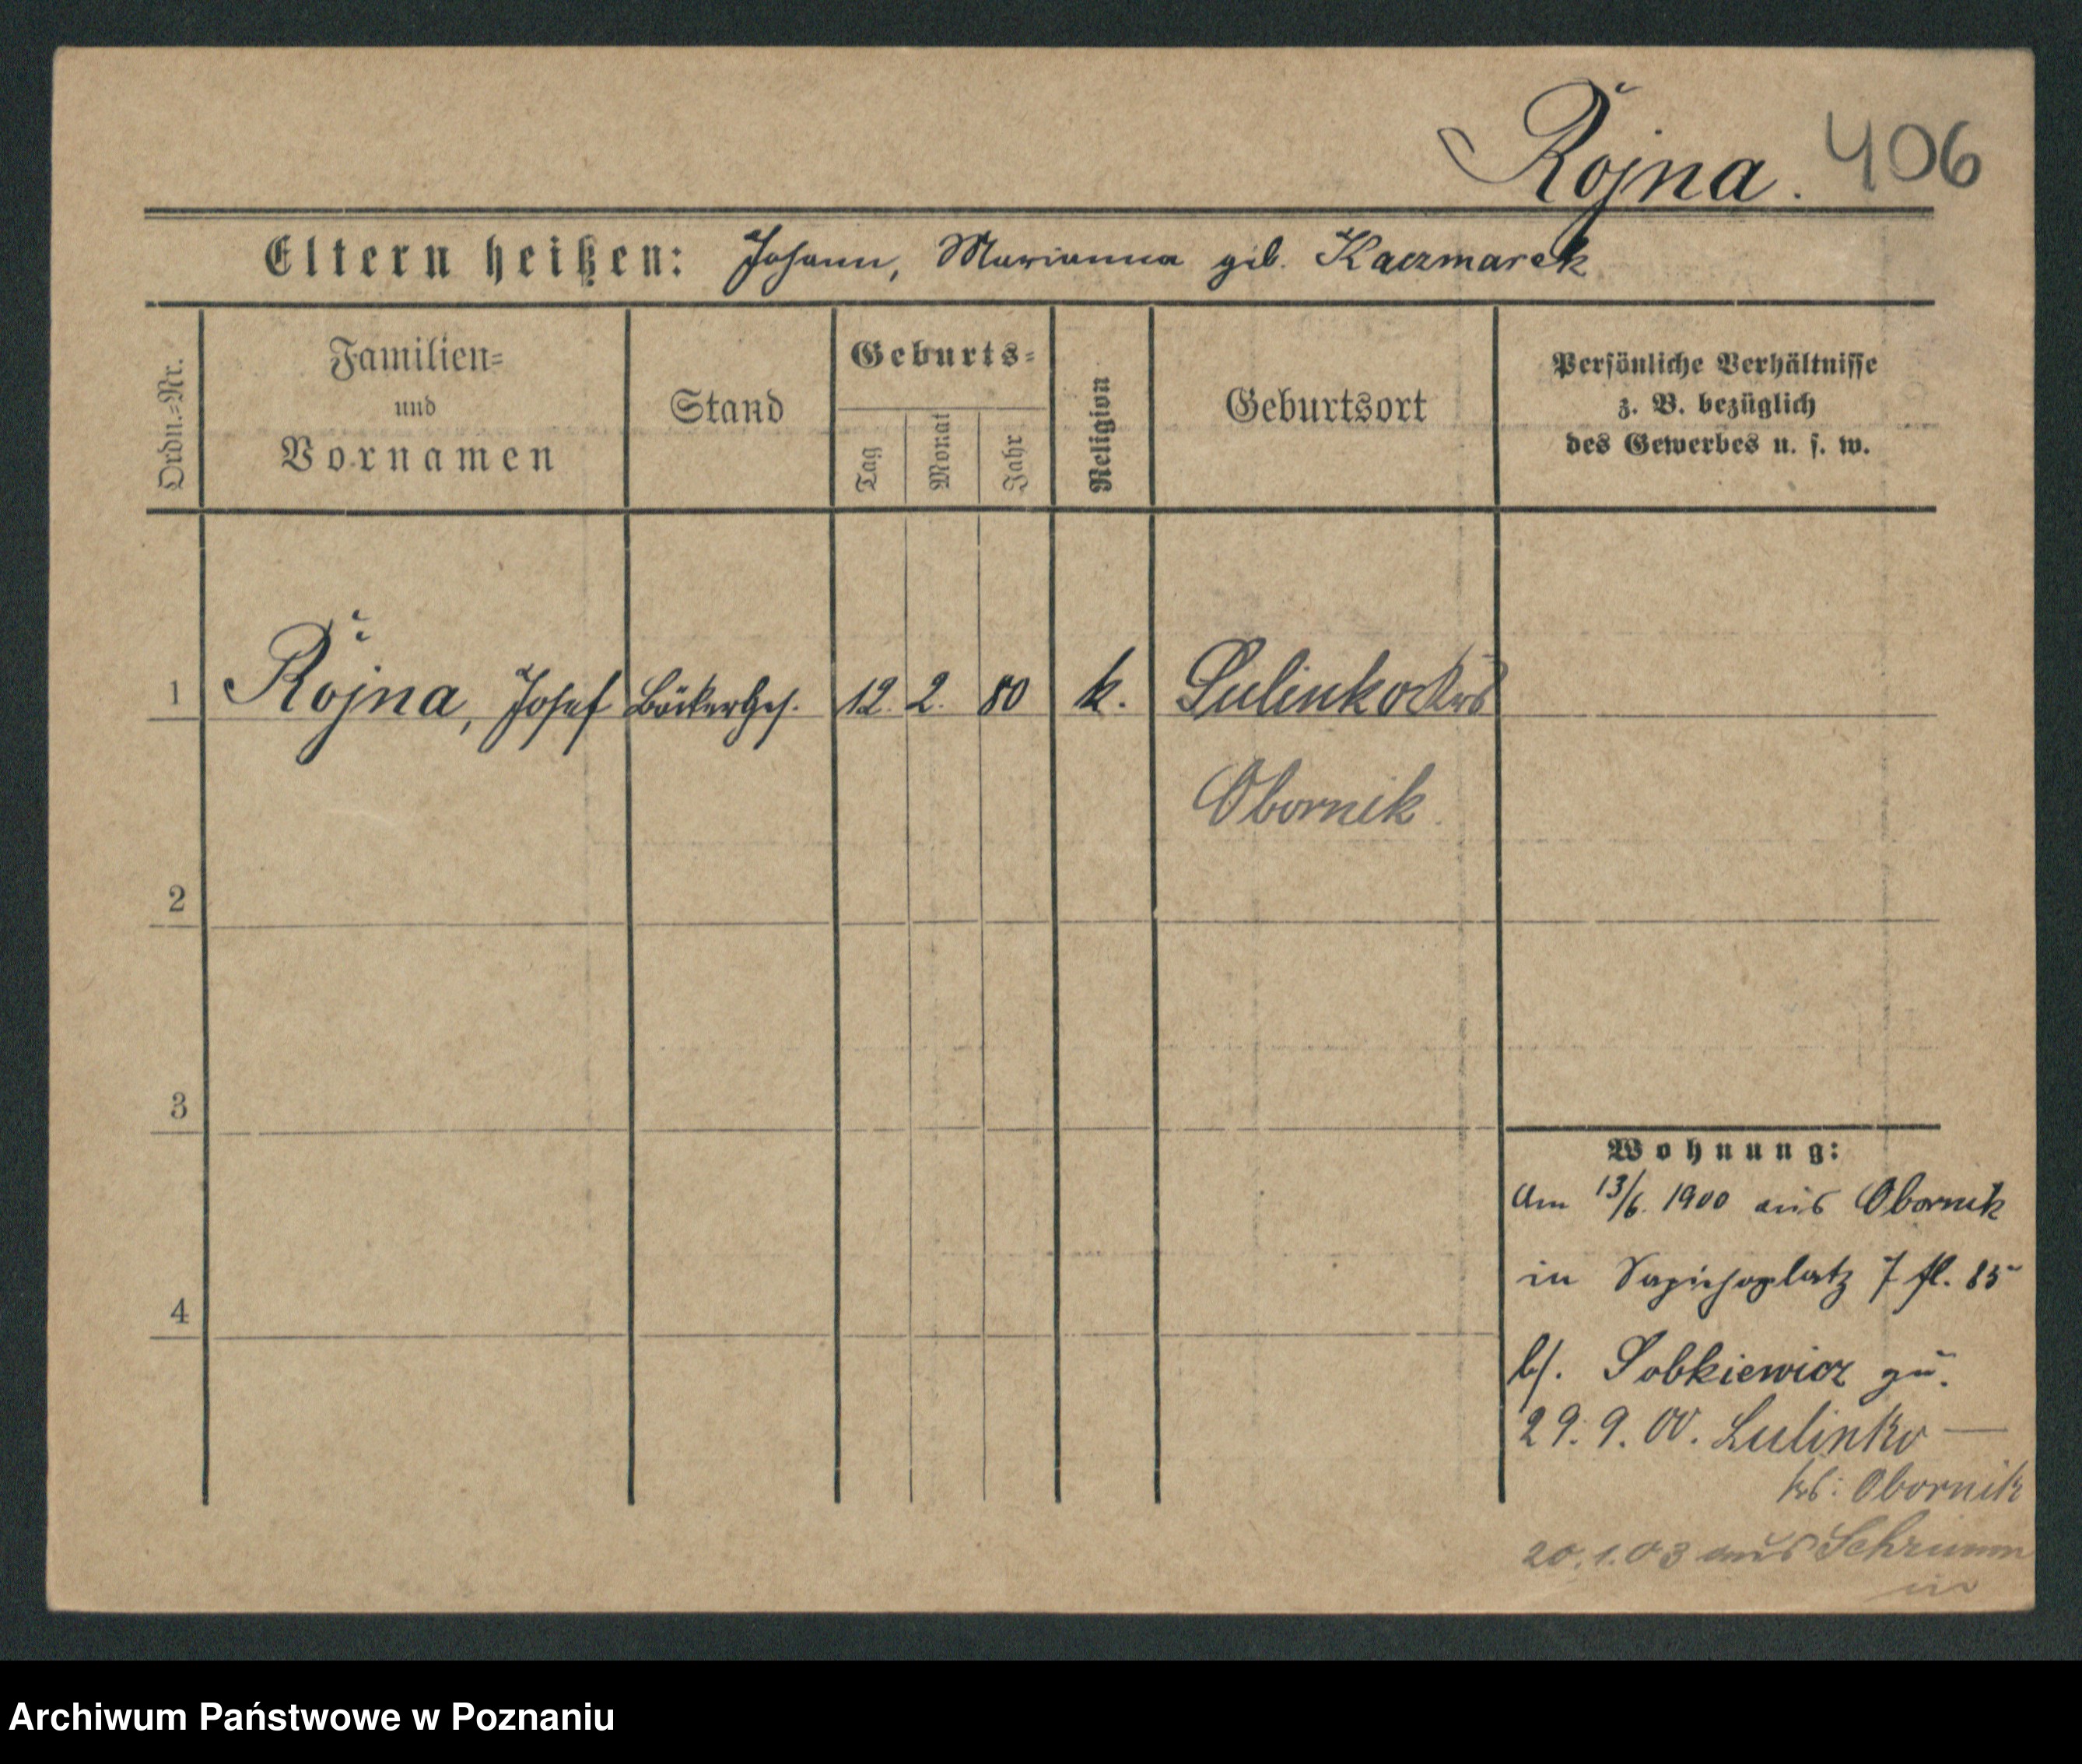 Rojna. 406
Eltern heißen: Johann, Marianna geb. Kaczmarek
Ordn.=Nr.
Familien=
und
Vornamen
Stand
Geburts=
Tag
Monat
Jahr
Religion
Geburtsort
Persönliche Verhältnisse
z. B. bezüglich
des Gewerbes u. s. w.
1 Rojna, Josef Bäckerges. 12. 2. 80 k. Lulinko Krs
Obornik.
2
3
4
Wohnung:
Am 13/6. 1900 aus Obornik
in Sapiehaplatz 7 fl. 85
b/. Sobkiewicz zu.
29. 9. 00. Lulinko —
Krs: Obornik
20.1.03 aus Schrimm
in
Archiwum Państwowe w Poznaniu